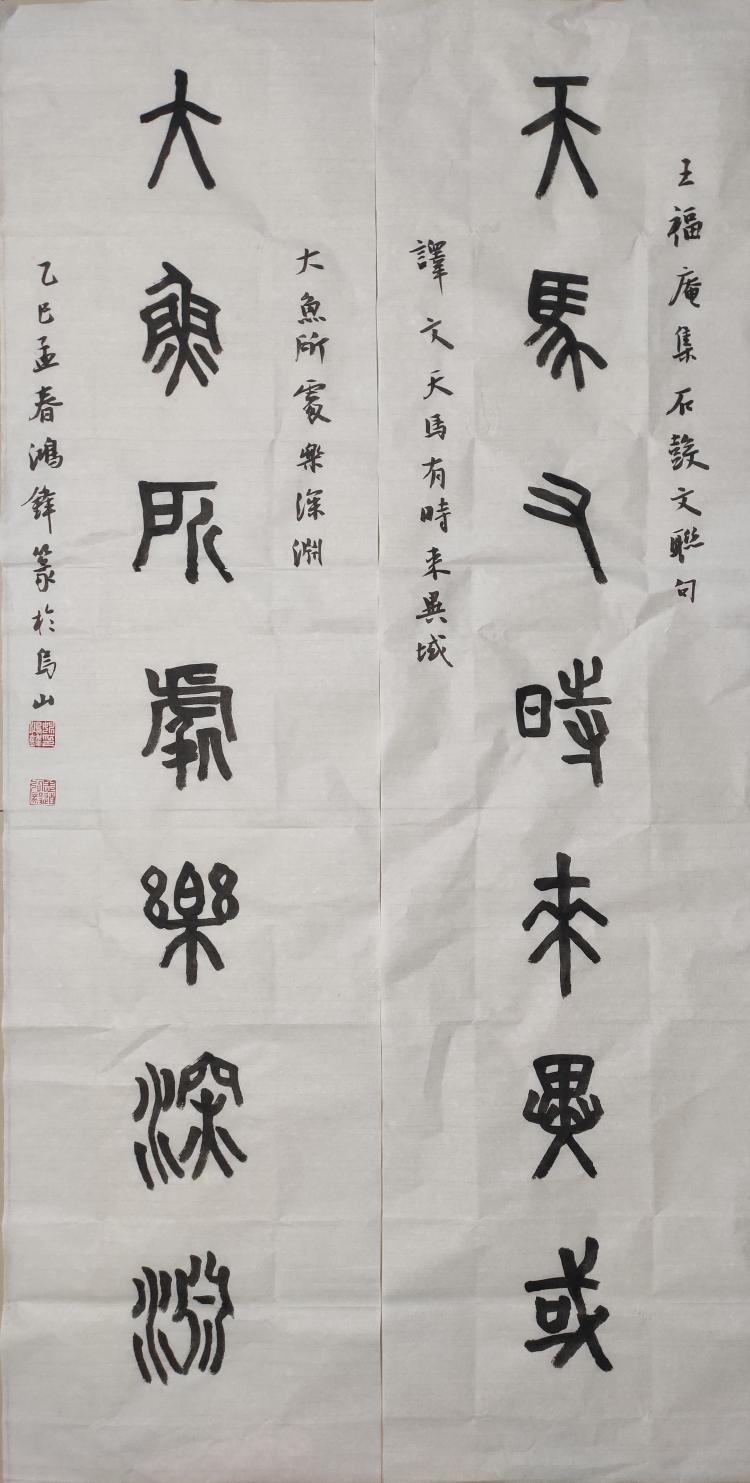 王福庵集石鼓文聯句
天馬又時來異或
譯文天馬有時来異域
大魚所處樂深淵
大魚所處樂深淵
乙巳孟春鴻鋒篆於烏山